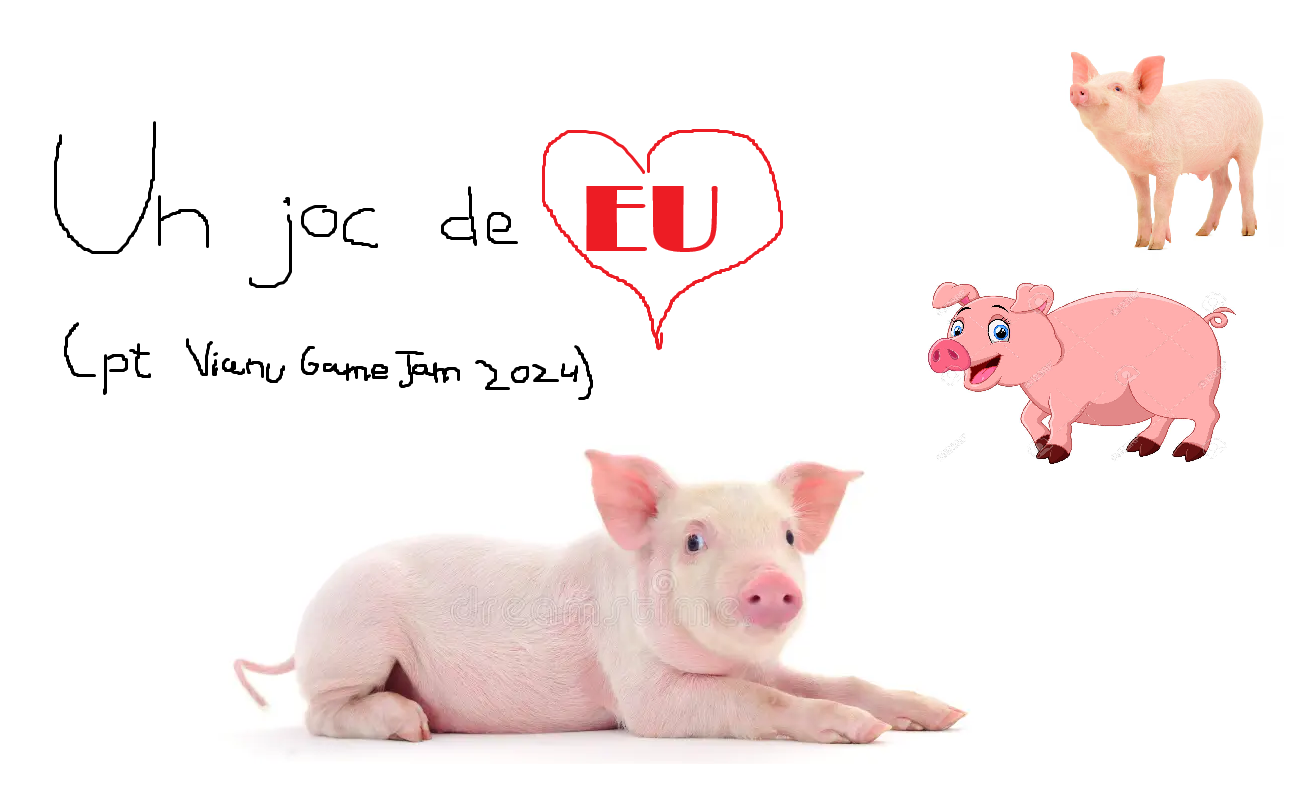 Un joc de EU
(pt Vianu Game Jam 2024)
dreamstime